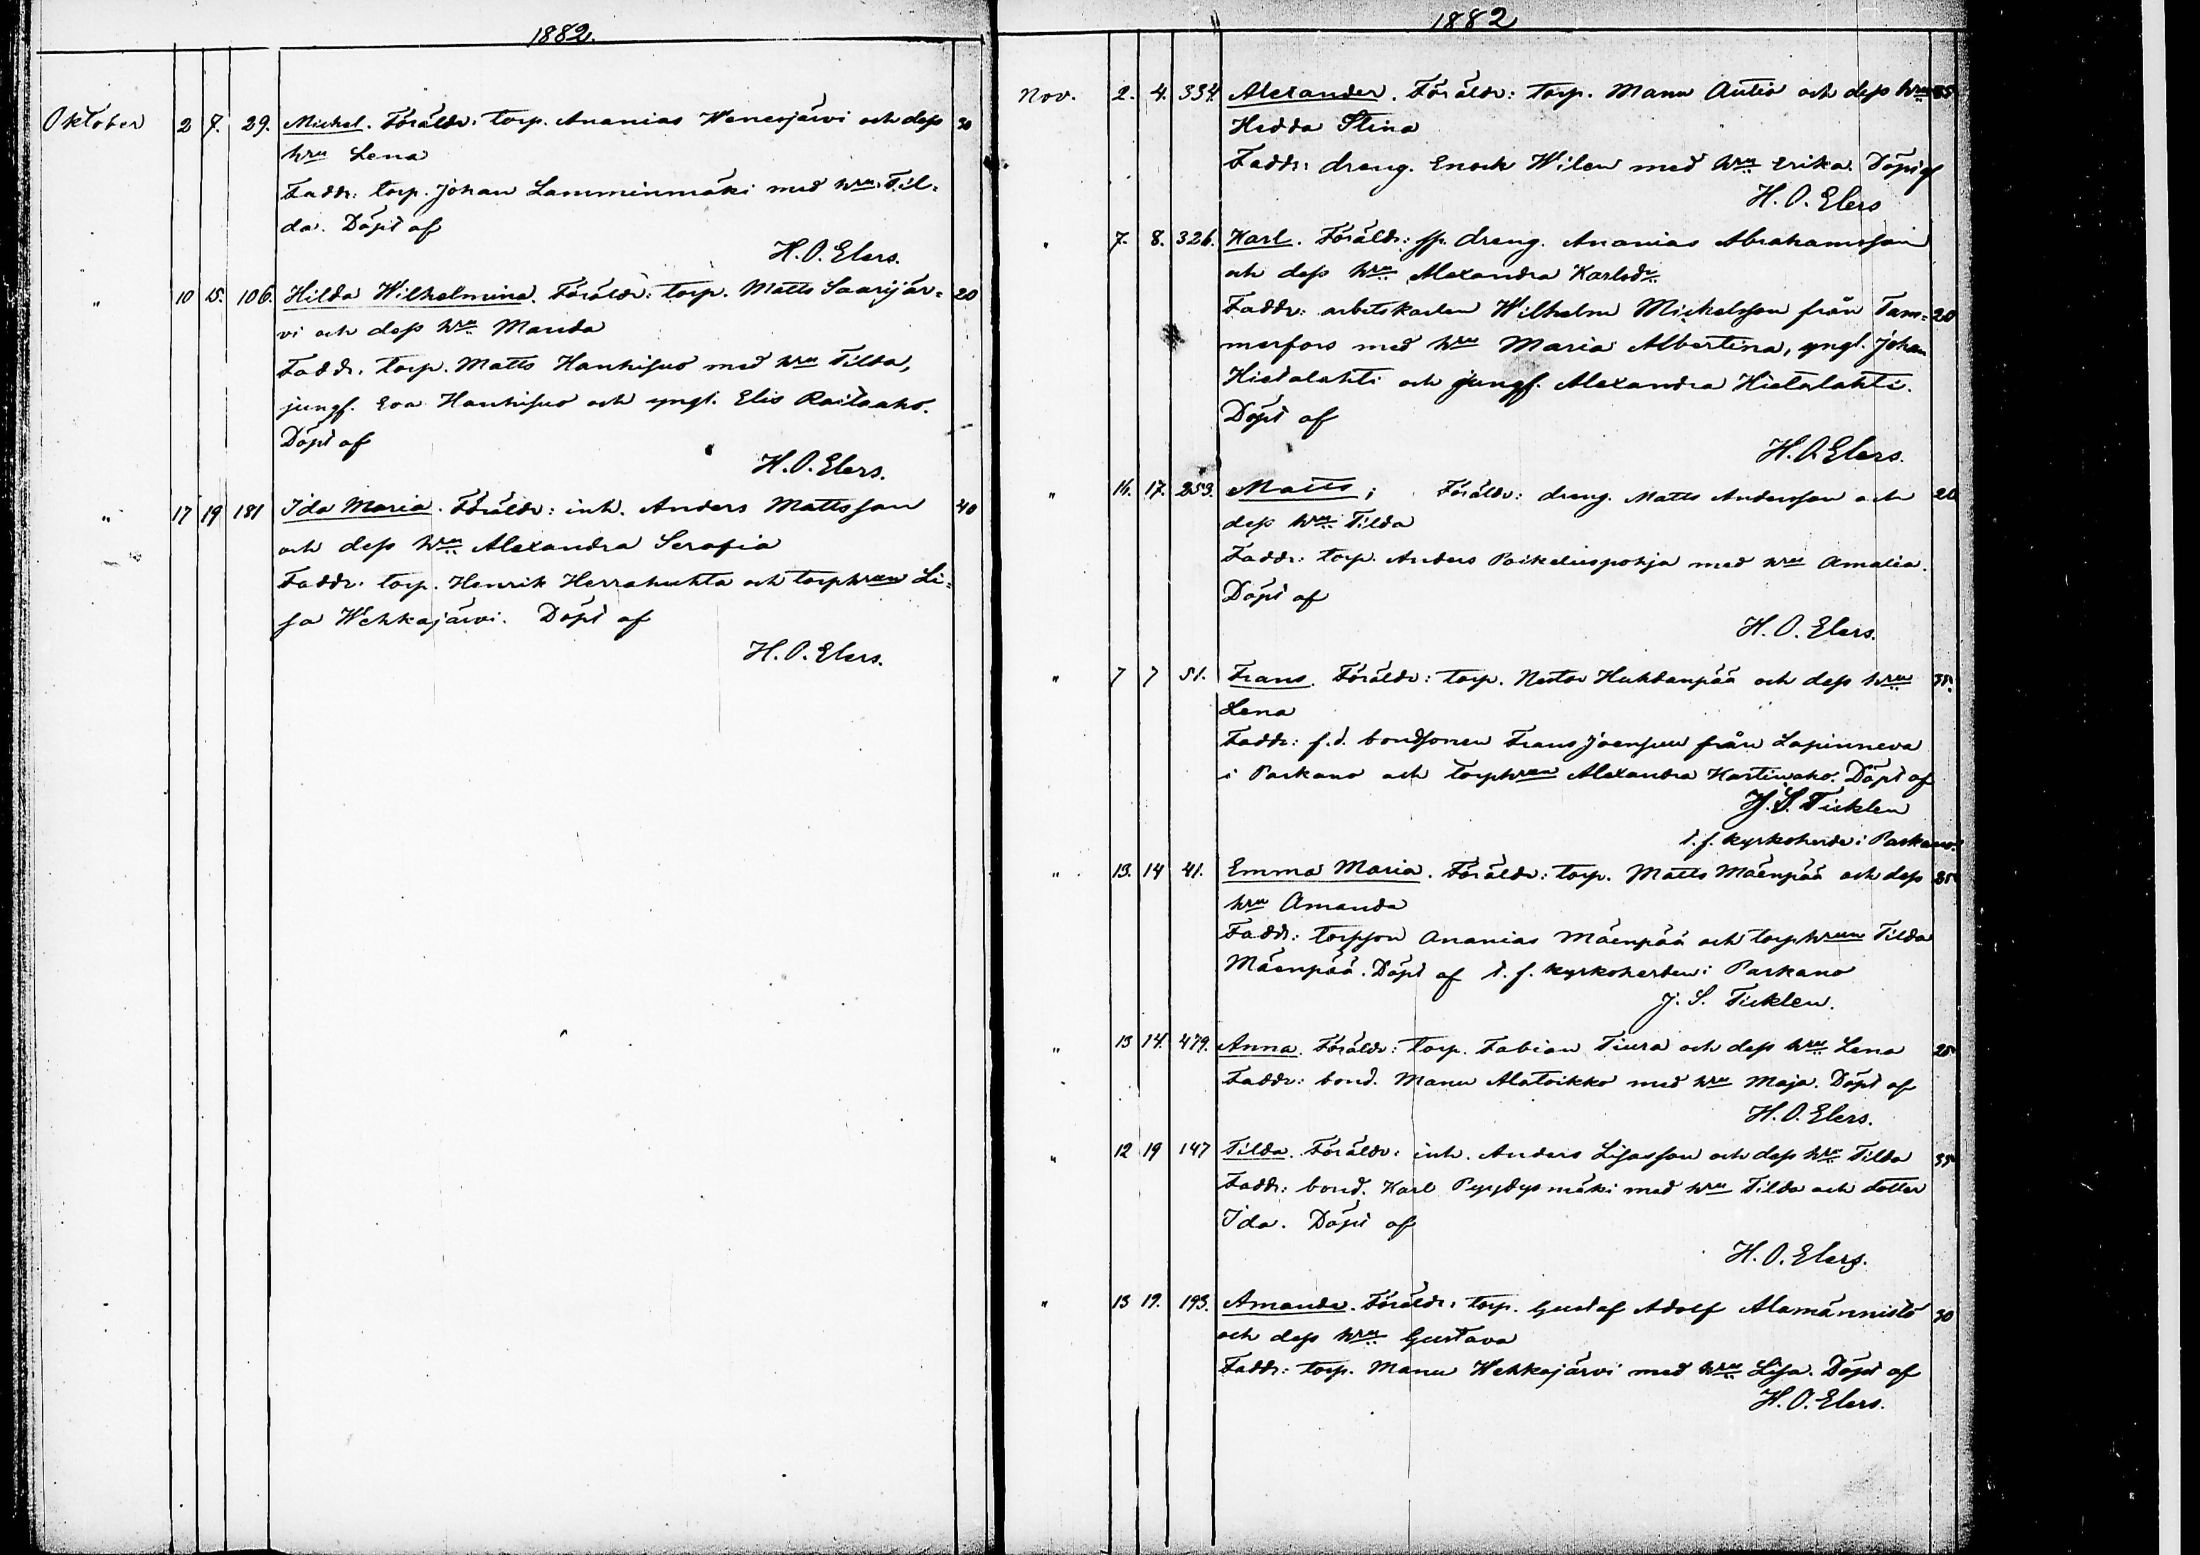 1882.
Oktober 2 7. 29. Michel. Föräldr: torp. Ananias Wenesjärvi och dess 30
hru Lena
Faddr: torp. Johan Lamminmäki med hru Til-
da. Döpt af
H. O. Elers.
" 10 15. 106. Hilda Wilhelmina. Föräldr: torp. Matts Saarijär- 20
vi och dess hru Manda
Faddr. torp. Matts Hanhisuo med hru Tilda,
jungf. Eva Hanhisuo och yngl. Elis Raitaaho.
Döpt af
H. O. Elers.
" 17 19 181 Ida Maria. Föräldr: inh. Anders Mattsson 40
och dess hru Alexandra Serafia
Faddr. torp. Henrik Herrahuhta och torphrun Li-
sa Wehkajärvi. Döpt af
H. O. Elers.
1882
Nov. 2. 4. 334. Alexander. Föräldr: torp. Manu Autio och dess hru 35
Hedda Stina
Faddr: dreng. Enock Wilen med hru Erika. Döpt af
H. O. Elers
" 7. 8. 326. Karl. Föräldr: dreng. Ananias Abrahamsson
och dess hru Alexandra Karlsdr
Faddr: arbetskarlen Wilhelm Mickelsson från Tam- 20
merfors med hru Maria Albertina, yngl. Johan
Hietalahti och jungf. Alexandra Hietalahti.
Döpt af
H. O. Elers.
" 16. 17. 253. Matts; Föräldr: dreng. Matts Andersson och 20
dess hru Tilda
Faddr: torp. Anders Poikeluspohja med hru Amalia.
Döpt af
H. O. Elers.
" 7 7 51. Frans. Föräldr: torp. Nestor Huhdanpää och dess hru 35.
Lena
Faddr: f.d. bondsonen Frans Joensuu från Lapinneva
i Parkano och torphrun Alexandra Hartinaho. Döpt af
J. S. Ticklen
t. f. kyrkoherde i Parkano.
" 13. 14 41. Emma Maria. Föräldr: torp. Matts Mäenpää och dess 35
hru Amanda
Faddr: torpson Ananias Mäenpää och torphrun Tilda
Mäenpää. Döpt af t. f. kyrkoherden i Parkano
J. S. Ticklen.
" 13 14. 479. Anna. Föräldr: torp. Fabian Tiura och dess hru Lena 25
Faddr: bond. Manu Alatoikko med hru Maja. Döpt af
H. O. Elers.
" 12 19 147 Tilda. Föräldr: inh. Anders Lisasson och dess hru Tilda 35
Faddr: bond. Karl Pyydysmäki med hru Tilda och dotter
Ida. Döpt af
H. O. Elers.
" 13 19. 193. Amanda. Föräldr: torp. Gustaf Adolf Alamännistö 30
och dess hru Gustava
Faddr: torp. Manu Wehkajärvi med hru Lisa. Döpt af
H. O. Elers.